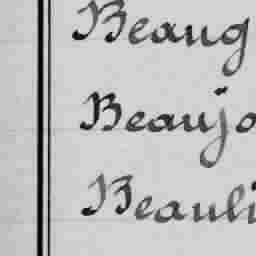 Beaug
Beaujo
Beauli